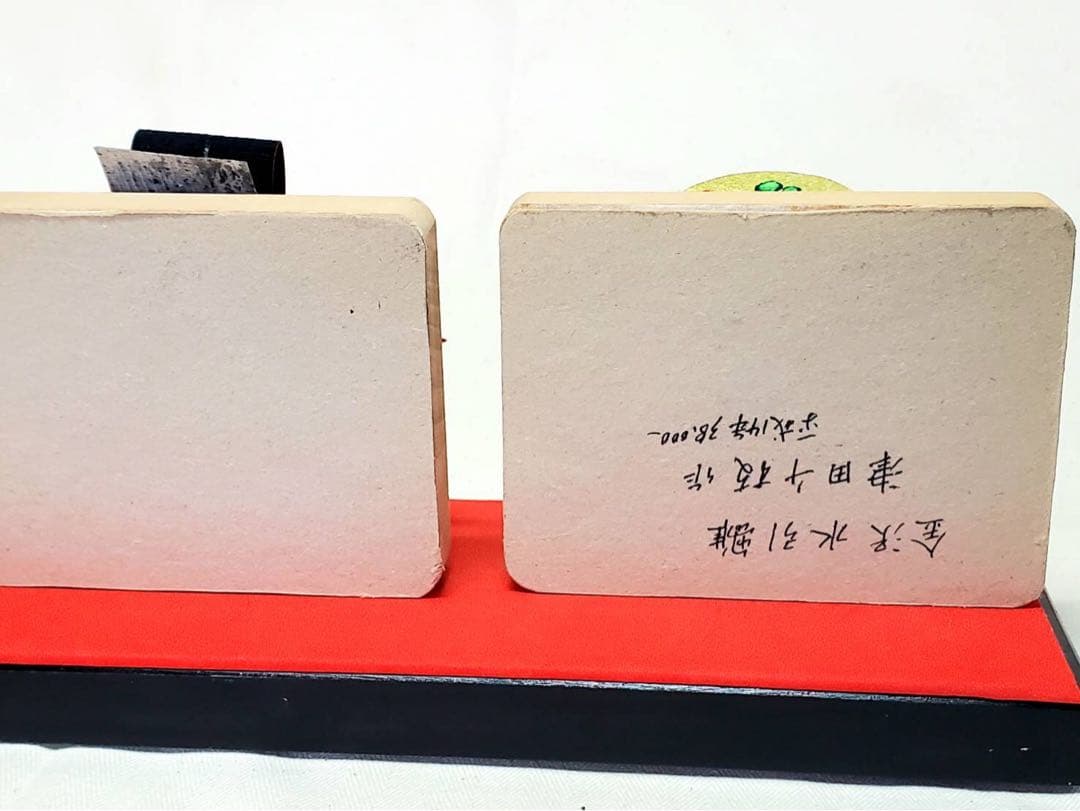 金沢水引雛
津田千枝作
平成14年 38.000-